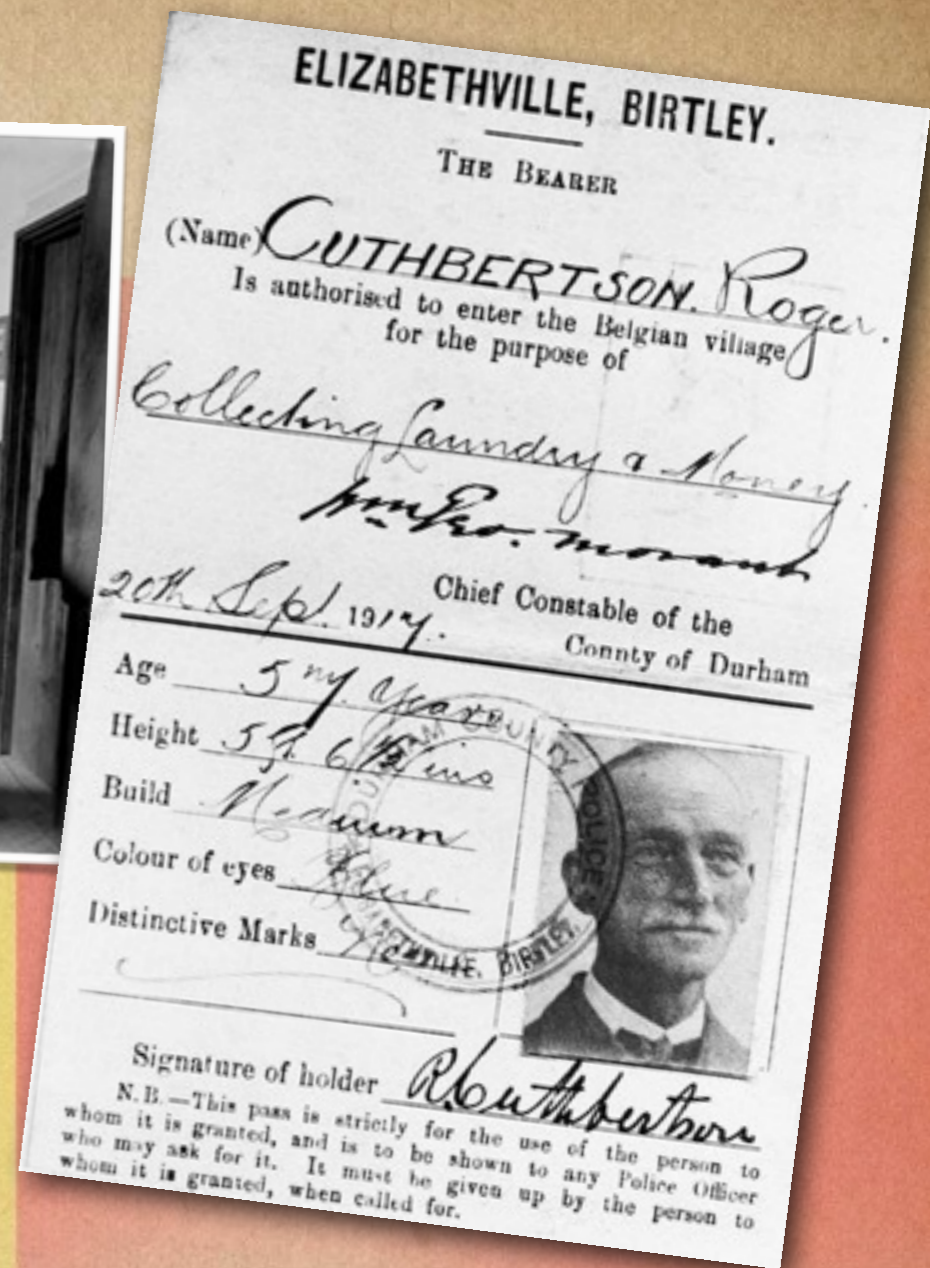 ELIZABETHVILLE, BIRTLEY.
THE BEARER
(Name) CUTHBERTSON. Roger.
Is authorised to enter the Belgian village
for the purpose of
Collecting Laundry & Money.
Wm Geo. Morant
Chief Constable of the
County of Durham
20th Sept. 1917.
Age 57 Years
Height 5 ft. 6 ins
Build Medium
Colour of eyes Blue
Distinctive Marks
DURHAM COUNTY POLICE.
ELIZABETHVILLE. BIRTLEY.
Signature of holder R. Cuthbertson
N.B.—This pass is strictly for the use of the person to
whom it is granted, and is to be shown to any Police Officer
who may ask for it. It must be given up by the person to
whom it is granted, when called for.